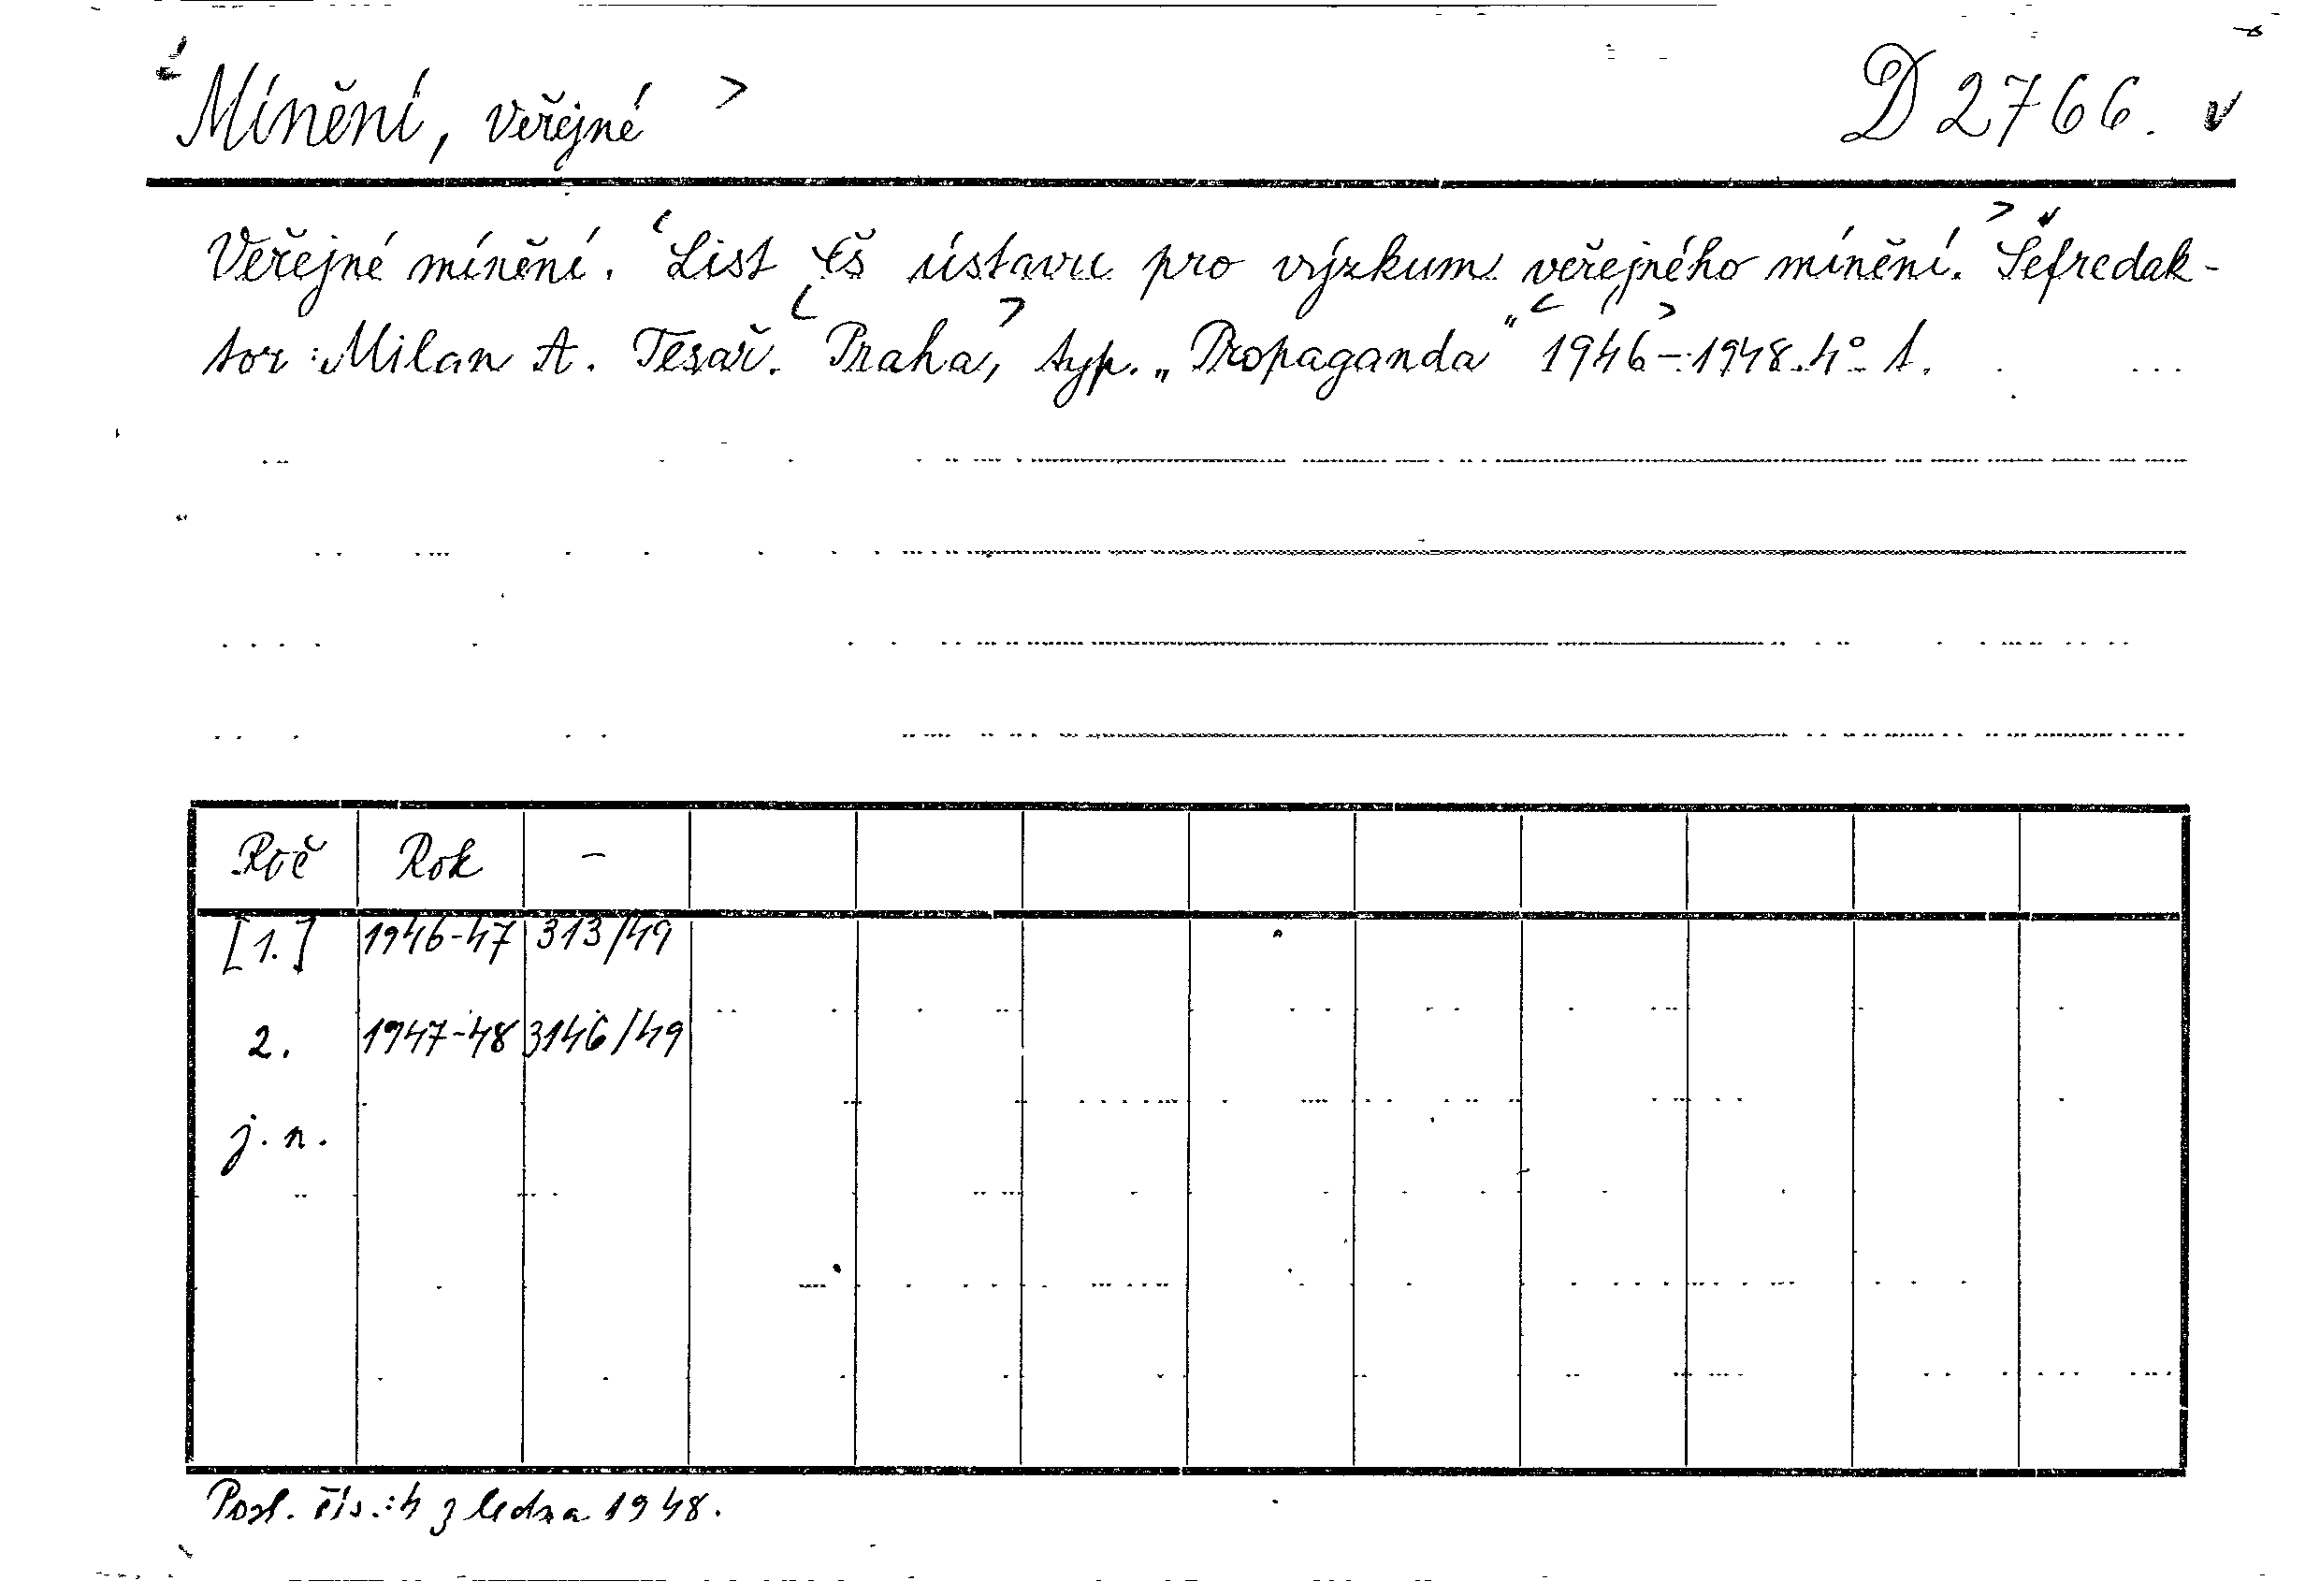 Mínění, veřejné D 2766.
Veřejné mínění. List čs ústavu pro výzkum veřejného mínění. Šéfredak-
tor: Milan A. Tesař. Praha, typ. „Propaganda" 1946-1948. 4°
Roč Rok -
[1.] 1946-47 313/49
2. 1947-48 3146/49
j. n.
Posl. čís.: 4 z ledna 1948.